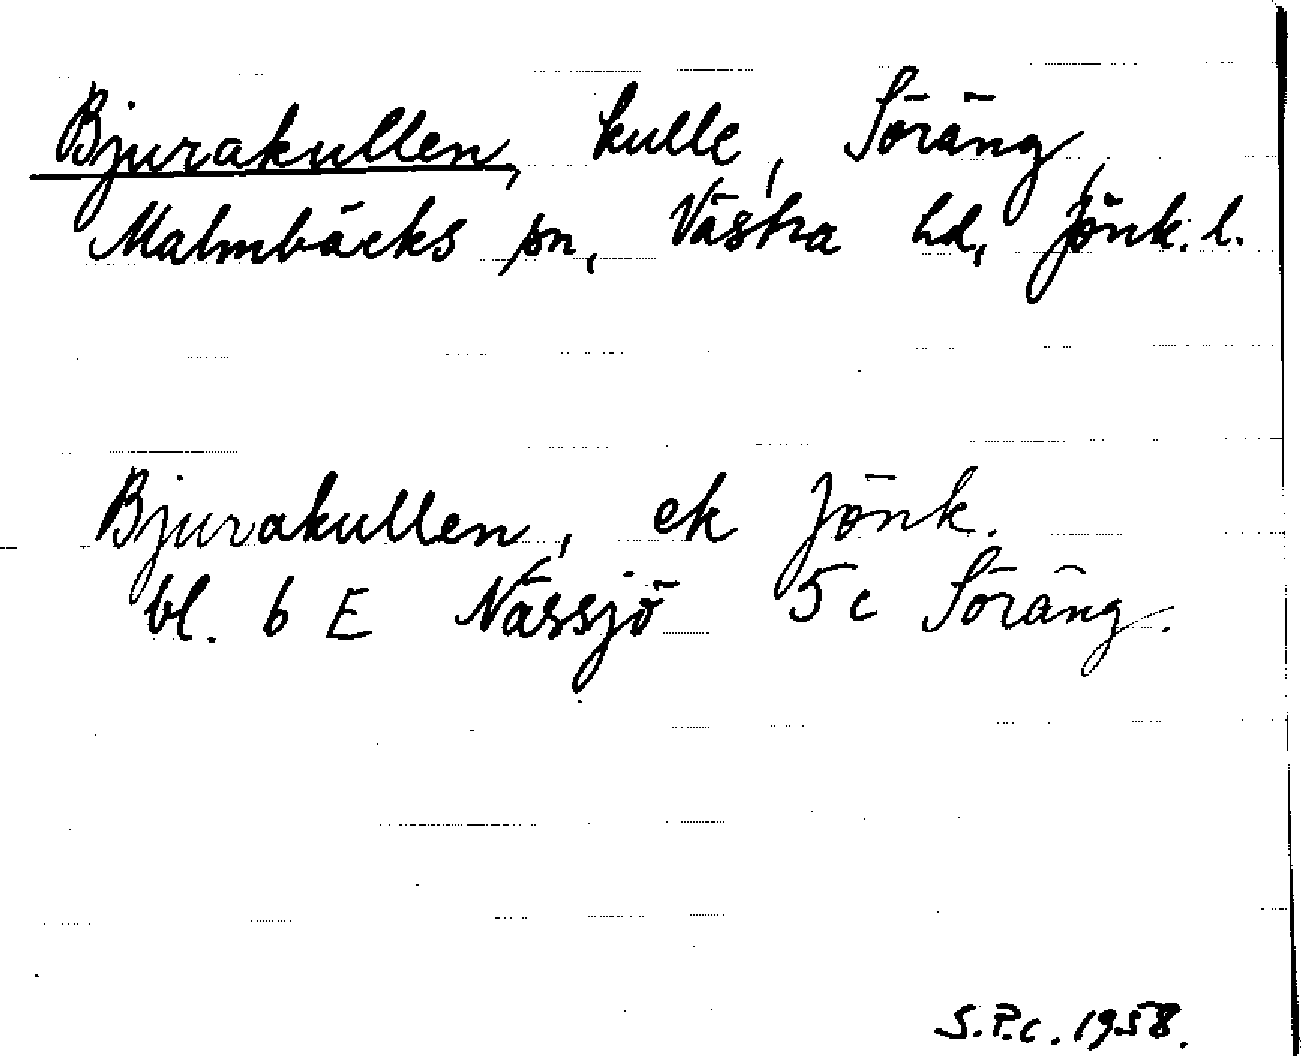 Bjurakullen, kulle, Söräng,
Malmbäcks sn, Västra hd, Jönk. l.
Bjurakullen, ek Jönk.
bl. 6 E Nässjö 5c Söräng.
S.P.C. 1958.